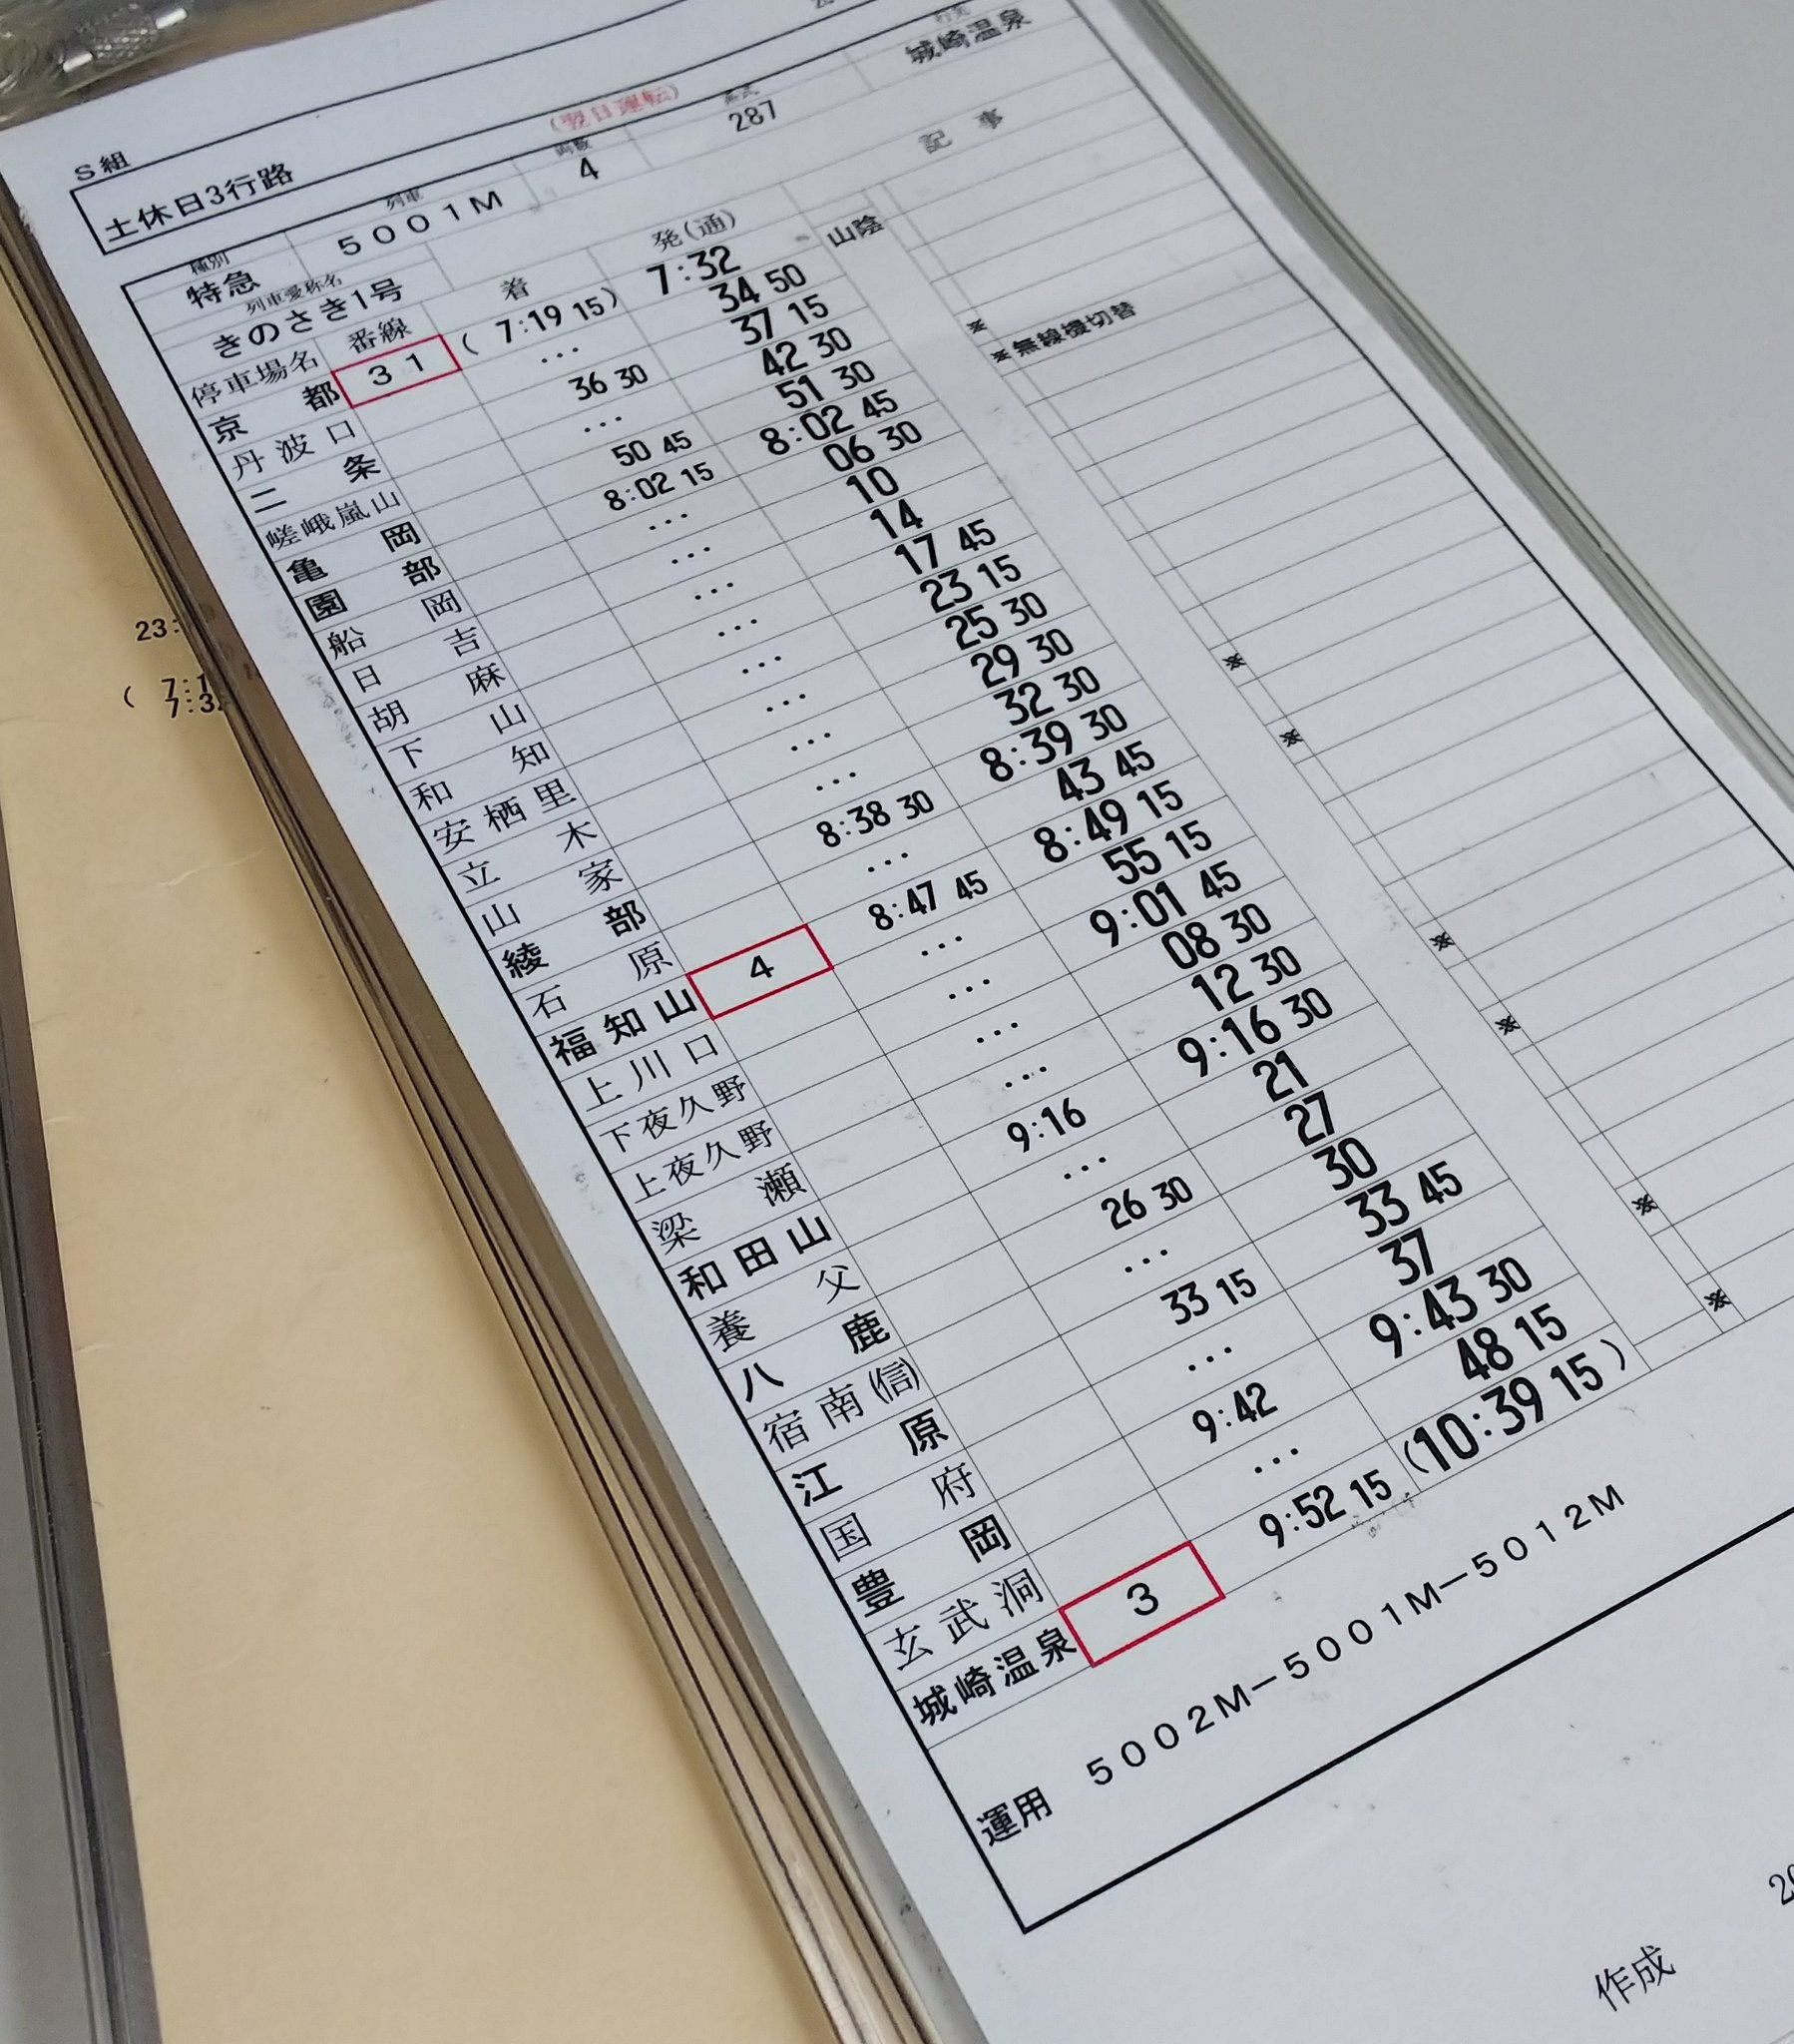 S組
(翌日運転)
土休日3行路
種別 列車 両数 形式 行先
特急 5001M 4 287 城崎温泉
列車愛称名
きのさき1号
停車場名 番線 着 発(通) 記事
京都 31 ( 7:19 15) 7:32 山陰
丹波口 … 34 50
二条 36 30 37 15
嵯峨嵐山 … 42 30
亀岡 50 45 51 30
園部 8:02 15 8:02 45
船岡 … 06 30
日吉 … 10
胡麻 … 14
下山 … 17 45
和知 … 23 15
安栖里 … 25 30
立木 … 29 30
山家 … 32 30
綾部 8:38 30 8:39 30
石原 … 43 45
福知山 4 8:47 45 8:49 15
上川口 … 55 15
下夜久野 … 9:01 45
上夜久野 … 08 30
梁瀬 … 12 30
和田山 9:16 9:16 30
養父 … 21
八鹿 26 30 27
宿南(信) … 30
江原 33 15 33 45
国府 … 37
豊岡 9:42 9:43 30
玄武洞 … 48 15
城崎温泉 3 9:52 15 (10:39 15)
※
※無線機切替
※
※
※
※
※
※
運用 5002M－5001M－5012M
作成
23:
( 7:1
7:3